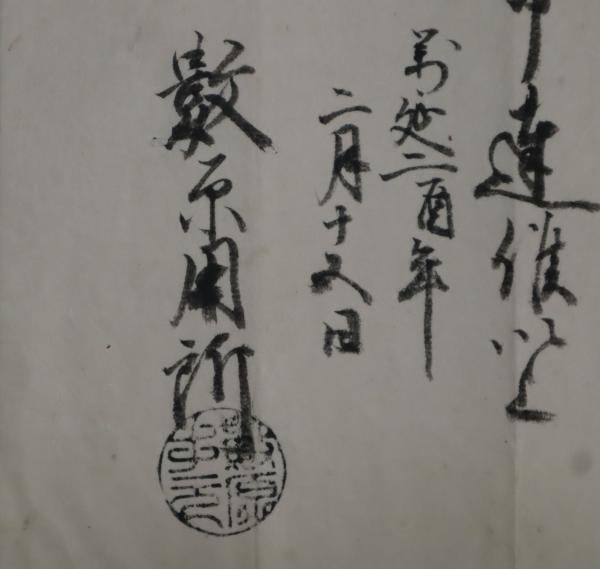 達候以上
萬延二酉年
二月十五日
數原用所